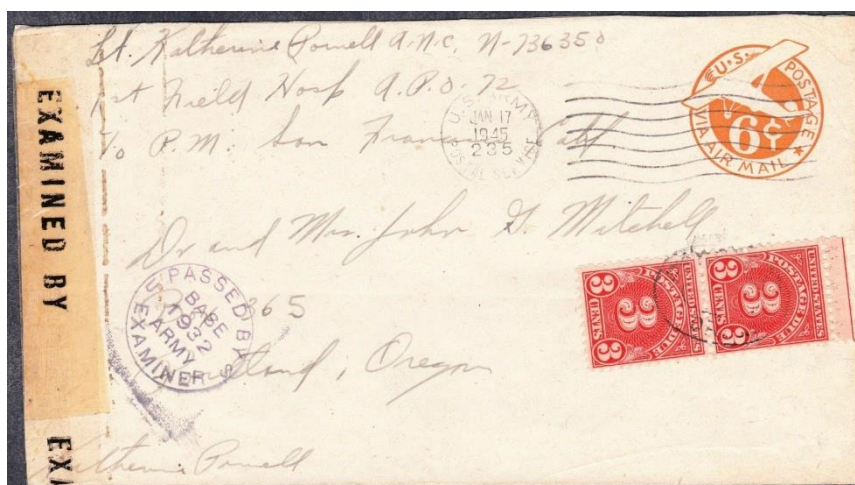 Lt. Katherine Powell A.N.C. N-736350
1st Field Hosp A.P.O. 72
c/o P.M. San Francisco Calif.
U.S. ARMY
JAN 17
1945
235
POSTAL SERVICE
U.S. POSTAGE
6¢
VIA AIR MAIL
EXAMINED BY
Dr and Mrs. John G. Mitchell
365
Oregon
PASSED BY
BASE
1932
ARMY
EXAMINER
UNITED STATES
POSTAGE DUE
3
3 CENTS 3
UNITED STATES
POSTAGE DUE
3
3 CENTS 3
EXA
Katherine Powell